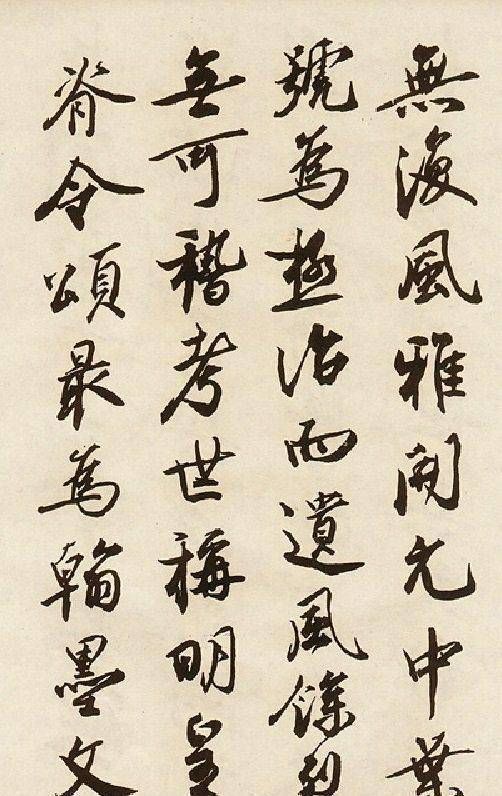 無海風雅開元中葉
號為極治而遺風餘烈
無可稽考世稱明皇
脊令頌最為翰墨文